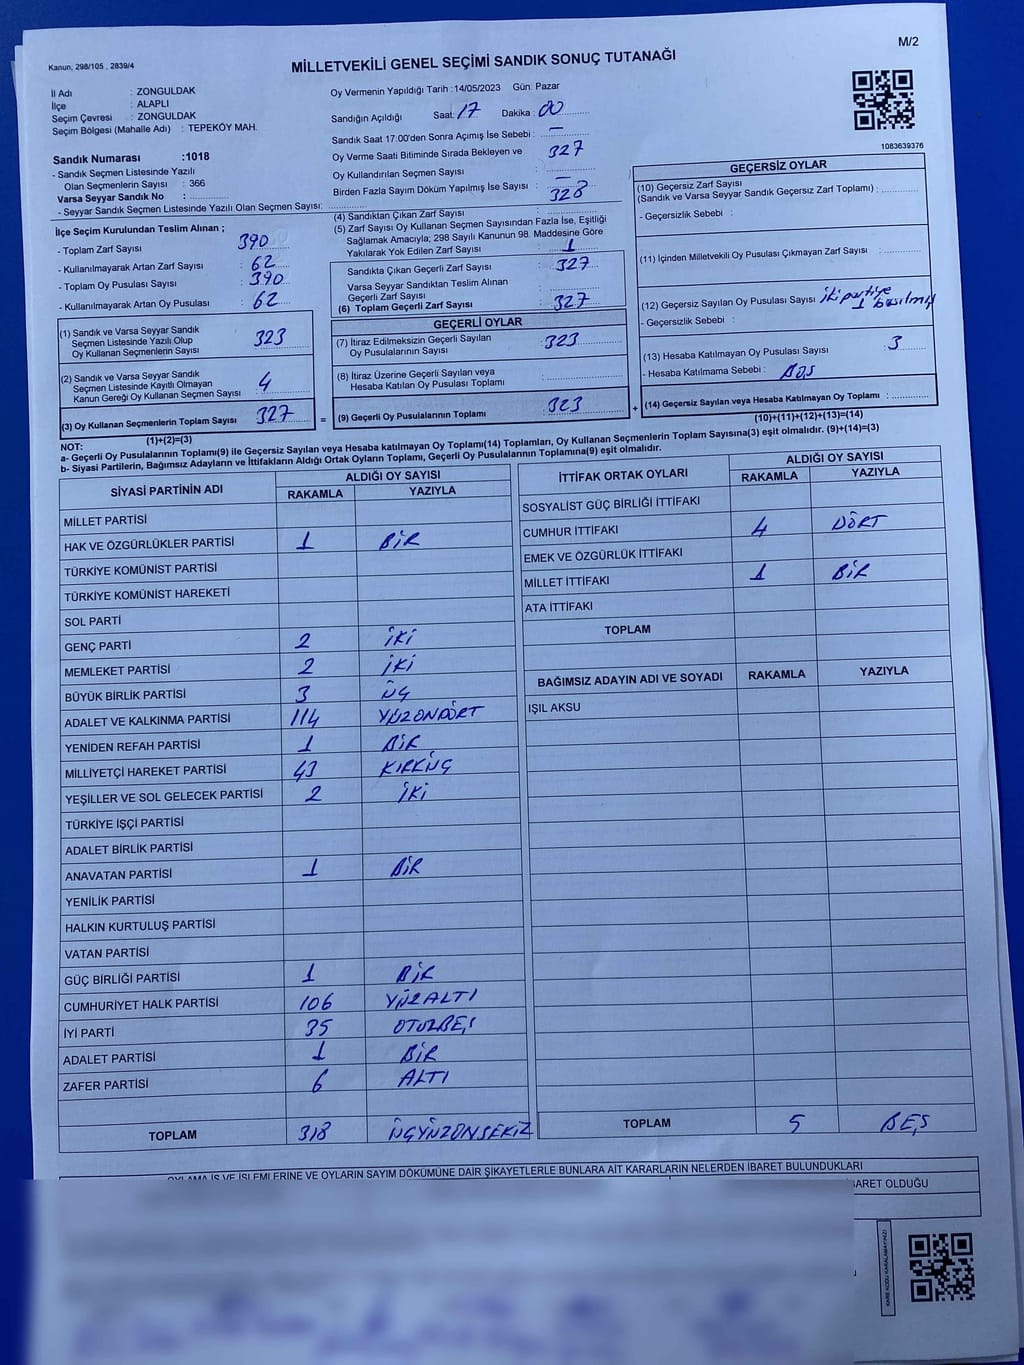 M/2
Kanun; 298/105 , 2839/4
MİLLETVEKİLİ GENEL SEÇİMİ SANDIK SONUÇ TUTANAĞI
İl Adı : ZONGULDAK
İlçe : ALAPLI
Seçim Çevresi : ZONGULDAK
Seçim Bölgesi (Mahalle Adı) : TEPEKÖY MAH.
Sandık Numarası :1018
- Sandık Seçmen Listesinde Yazılı
Olan Seçmenlerin Sayısı : 366
Varsa Seyyar Sandık No :
- Seyyar Sandık Seçmen Listesinde Yazılı Olan Seçmen Sayısı:
Oy Vermenin Yapıldığı Tarih :14/05/2023 Gün: Pazar
Sandığın Açıldığı Saat: 17 Dakika : 00
Sandık Saat 17:00'den Sonra Açımış İse Sebebi : —
Oy Verme Saati Bitiminde Sırada Bekleyen ve : 327
Oy Kullandırılan Seçmen Sayısı
Birden Fazla Sayım Döküm Yapılmış İse Sayısı : —
328
1083639376
İlçe Seçim Kurulundan Teslim Alınan ;
- Toplam Zarf Sayısı : 390
- Kullanılmayarak Artan Zarf Sayısı : 62
- Toplam Oy Pusulası Sayısı : 390
- Kullanılmayarak Artan Oy Pusulası : 62
(1) Sandık ve Varsa Seyyar Sandık
Seçmen Listesinde Yazılı Olup
Oy Kullanan Seçmenlerin Sayısı : 323
(2) Sandık ve Varsa Seyyar Sandık
Seçmen Listesinde Kayıtlı Olmayan
Kanun Gereği Oy Kullanan Seçmen Sayısı : 4
(3) Oy Kullanan Seçmenlerin Toplam Sayısı : 327
(1)+(2)=(3)
(4) Sandıktan Çıkan Zarf Sayısı :
(5) Zarf Sayısı Oy Kullanan Seçmen Sayısından Fazla İse, Eşitliği
Sağlamak Amacıyla; 298 Sayılı Kanunun 98. Maddesine Göre
Yakılarak Yok Edilen Zarf Sayısı : 1
Sandıkta Çıkan Geçerli Zarf Sayısı : 327
Varsa Seyyar Sandıktan Teslim Alınan
Geçerli Zarf Sayısı :
(6) Toplam Geçerli Zarf Sayısı : 327
GEÇERLİ OYLAR
(7) İtiraz Edilmeksizin Geçerli Sayılan
Oy Pusulalarının Sayısı : 323
(8) İtiraz Üzerine Geçerli Sayılan veya
Hesaba Katılan Oy Pusulası Toplamı :
= (9) Geçerli Oy Pusulalarının Toplamı : 323
GEÇERSİZ OYLAR
(10) Geçersiz Zarf Sayısı
(Sandık ve Varsa Seyyar Sandık Geçersiz Zarf Toplamı) :
- Geçersizlik Sebebi :
(11) İçinden Milletvekili Oy Pusulası Çıkmayan Zarf Sayısı :
(12) Geçersiz Sayılan Oy Pusulası Sayısı iki partiye 1 basılmış
- Geçersizlik Sebebi :
(13) Hesaba Katılmayan Oy Pusulası Sayısı : 3
- Hesaba Katılmama Sebebi : BOŞ
+ (14) Geçersiz Sayılan veya Hesaba Katılmayan Oy Toplamı :
(10)+(11)+(12)+(13)=(14)
NOT:
a- Geçerli Oy Pusulalarının Toplamı(9) ile Geçersiz Sayılan veya Hesaba katılmayan Oy Toplamı(14) Toplamları, Oy Kullanan Seçmenlerin Toplam Sayısına(3) eşit olmalıdır. (9)+(14)=(3)
b- Siyasi Partilerin, Bağımsız Adayların ve İttifakların Aldığı Ortak Oyların Toplamı, Geçerli Oy Pusulalarının Toplamına(9) eşit olmalıdır.
SİYASİ PARTİNİN ADI ALDIĞI OY SAYISI
RAKAMLA YAZIYLA
MİLLET PARTİSİ
HAK VE ÖZGÜRLÜKLER PARTİSİ 1 BİR
TÜRKİYE KOMÜNİST PARTİSİ
TÜRKİYE KOMÜNİST HAREKETİ
SOL PARTİ
GENÇ PARTİ 2 İKİ
MEMLEKET PARTİSİ 2 İKİ
BÜYÜK BİRLİK PARTİSİ 3 ÜÇ
ADALET VE KALKINMA PARTİSİ 114 YÜZONDÖRT
YENİDEN REFAH PARTİSİ 1 BİR
MİLLİYETÇİ HAREKET PARTİSİ 43 KIRKÜÇ
YEŞİLLER VE SOL GELECEK PARTİSİ 2 İKİ
TÜRKİYE İŞÇİ PARTİSİ
ADALET BİRLİK PARTİSİ
ANAVATAN PARTİSİ 1 BİR
YENİLİK PARTİSİ
HALKIN KURTULUŞ PARTİSİ
VATAN PARTİSİ
GÜÇ BİRLİĞİ PARTİSİ 1 BİR
CUMHURİYET HALK PARTİSİ 106 YÜZALTI
İYİ PARTİ 35 OTUZBEŞ
ADALET PARTİSİ 1 BİR
ZAFER PARTİSİ 6 ALTI
TOPLAM 318 ÜÇYÜZONSEKİZ
İTTİFAK ORTAK OYLARI ALDIĞI OY SAYISI
RAKAMLA YAZIYLA
SOSYALİST GÜÇ BİRLİĞİ İTTİFAKI
CUMHUR İTTİFAKI 4 DÖRT
EMEK VE ÖZGÜRLÜK İTTİFAKI
MİLLET İTTİFAKI 1 BİR
ATA İTTİFAKI
TOPLAM
BAĞIMSIZ ADAYIN ADI VE SOYADI RAKAMLA YAZIYLA
IŞIL AKSU
TOPLAM 5 BEŞ
OYLAMA İŞ VE İŞLEMLERİNE VE OYLARIN SAYIM DÖKÜMÜNE DAİR ŞİKAYETLERLE BUNLARA AİT KARARLARIN NELERDEN İBARET BULUNDUKLARI
İBARET OLDUĞU
KARE KODU KARALAMAYINIZ!